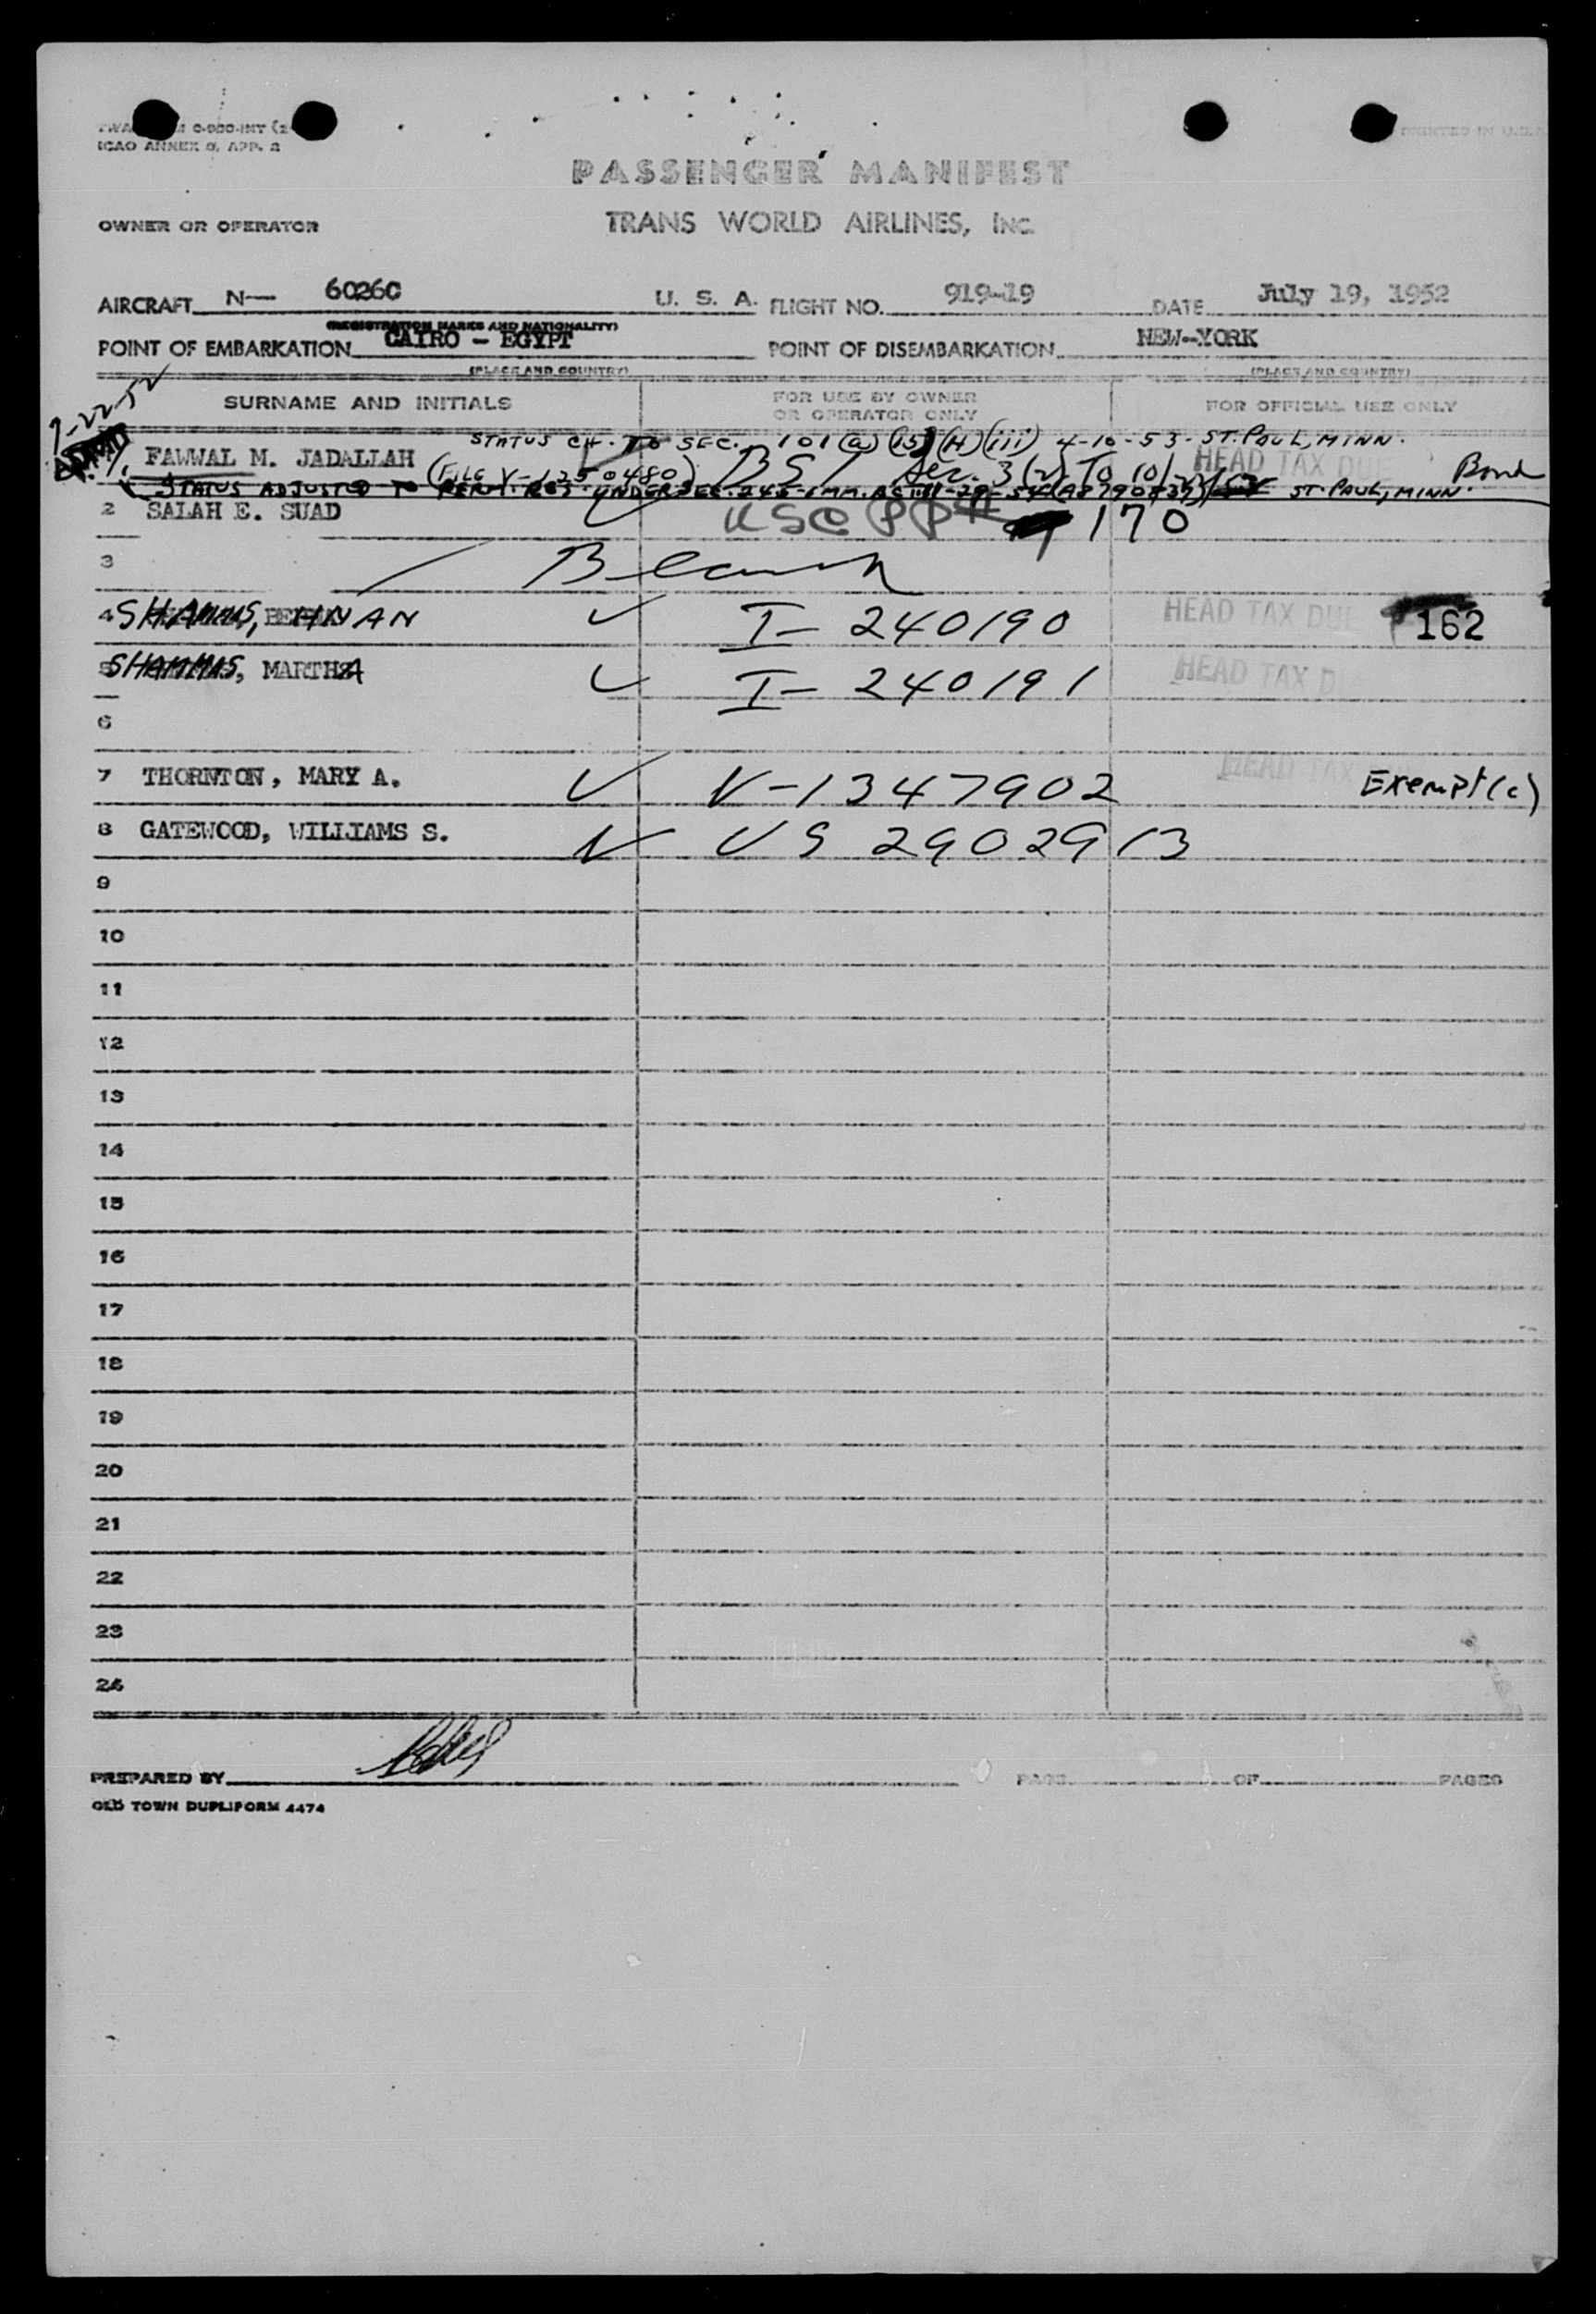 ICAO ANNEX 9, APP. 2
PRINTED IN U.S.A.
PASSENGER MANIFEST
OWNER OR OPERATOR TRANS WORLD AIRLINES, INC.
AIRCRAFT N— 6026C U. S. A. FLIGHT NO. 919-19 DATE July 19, 1952
(REGISTRATION MARKS AND NATIONALITY)
POINT OF EMBARKATION CAIRO - EGYPT POINT OF DISEMBARKATION NEW-YORK
(PLACE AND COUNTRY) (PLACE AND COUNTRY)
7-22-52
SURNAME AND INITIALS FOR USE BY OWNER OR OPERATOR ONLY FOR OFFICIAL USE ONLY
STATUS CH. TO SEC. 101(a)(15)(H)(iii) 4-10-53 - ST. PAUL, MINN.
1. FAWWAL M. JADALLAH (FILE V-1250480) BSI Sec. 3(2) TO HEAD TAX DUE Bond
STATUS ADJUSTED TO PERM. RES. UNDER SEC. 245 IMM. ACT ST. PAUL, MINN.
2 SALAH E. SUAD USC PP# 170
3 Blank
4 SHAMMAS, HNAN I- 240190 HEAD TAX DUE 162
5 SHAMMAS, MARTHA I- 240191 HEAD TAX D
6
7 THORNTON, MARY A. V-1347902 HEAD TAX Exempt (c)
8 GATEWOOD, WILLIAMS S. US 2902913
9
10
11
12
13
14
15
16
17
18
19
20
21
22
23
24
PREPARED BY PAGE OF PAGES
OLD TOWN DUPLIFORM 4474